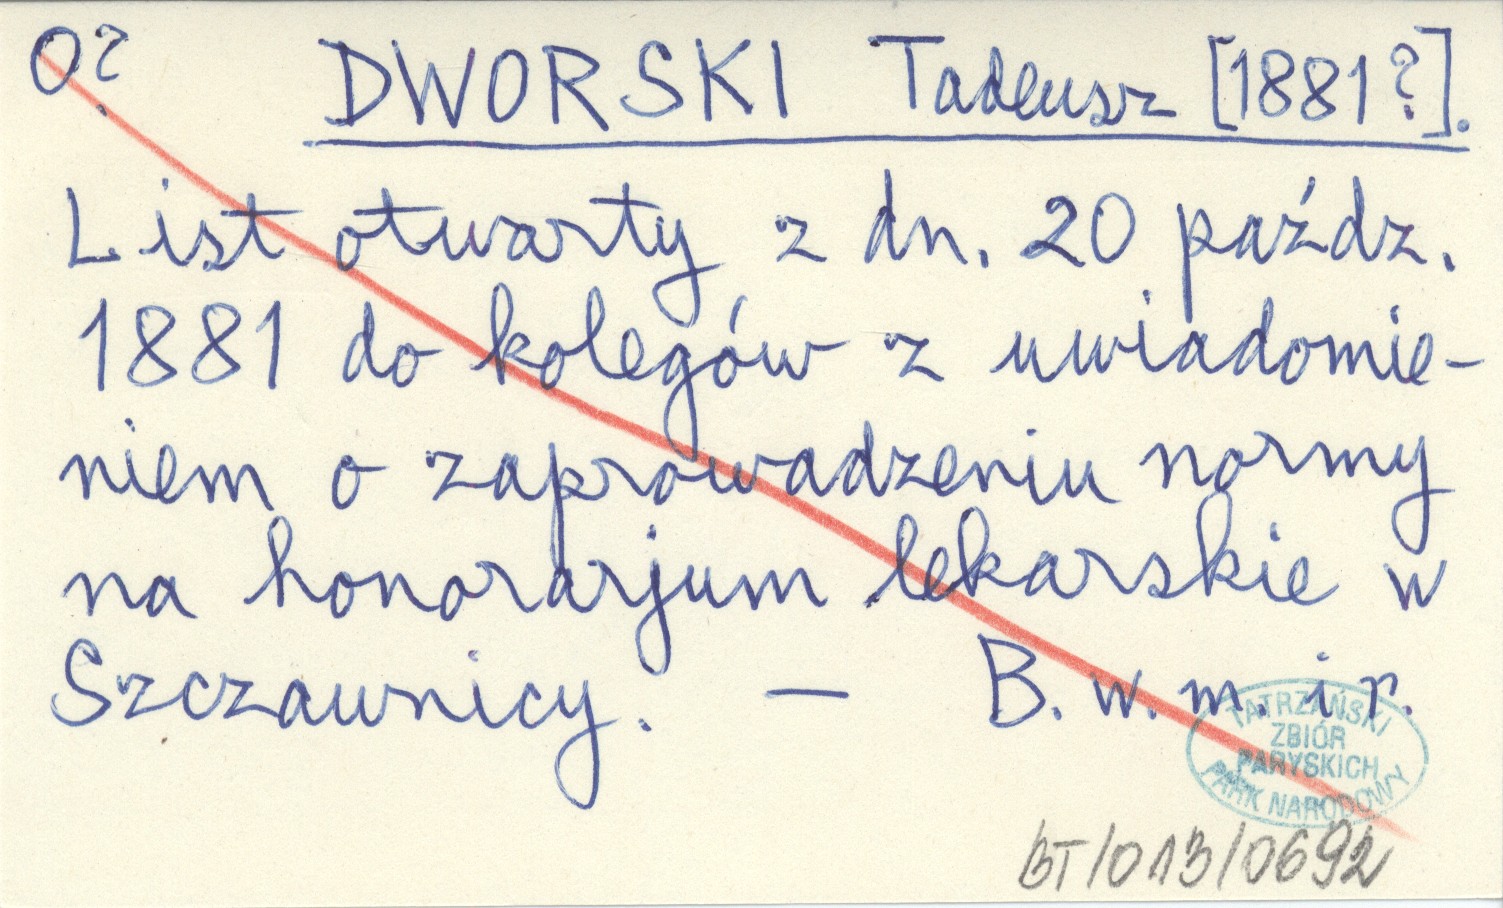 O? DWORSKI Tadeusz [1881?].
List otwarty z dn. 20 paźdz.
1881 do kolegów z uwiadomie-
niem o zaprowadzeniu normy
na honorarjum lekarskie w
Szczawnicy. — B. w. m. i r.
TATRZAŃSKI
ZBIÓR
PARYSKICH
PARK NARODOWY
BT/013/0692